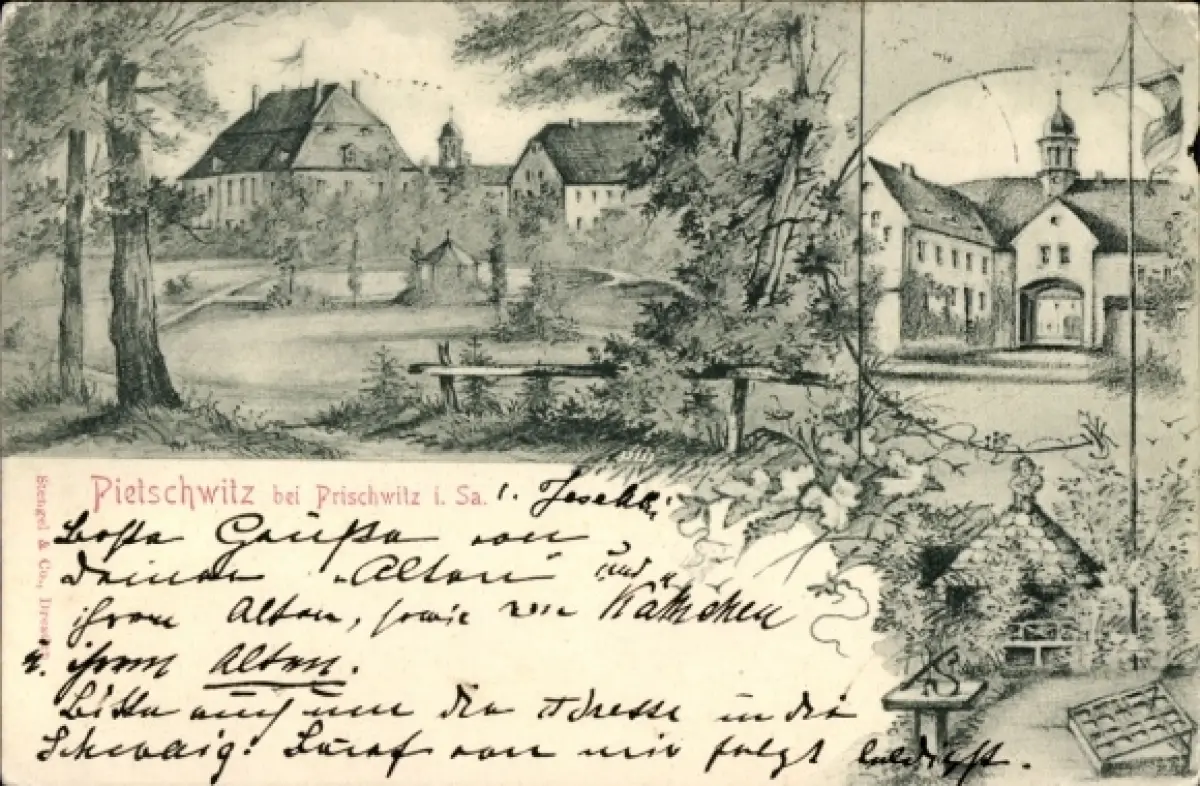 Pietschwitz bei Prischwitz i. Sa.
Stengel & Co., Dresd
Beste Grüße von
Deinem „Alten" und
ihrem Alten, sowie von Kätchen
u. ihrem Alten.
Bitte auch um die Adresse in die
Brief von mir folgt baldigst.